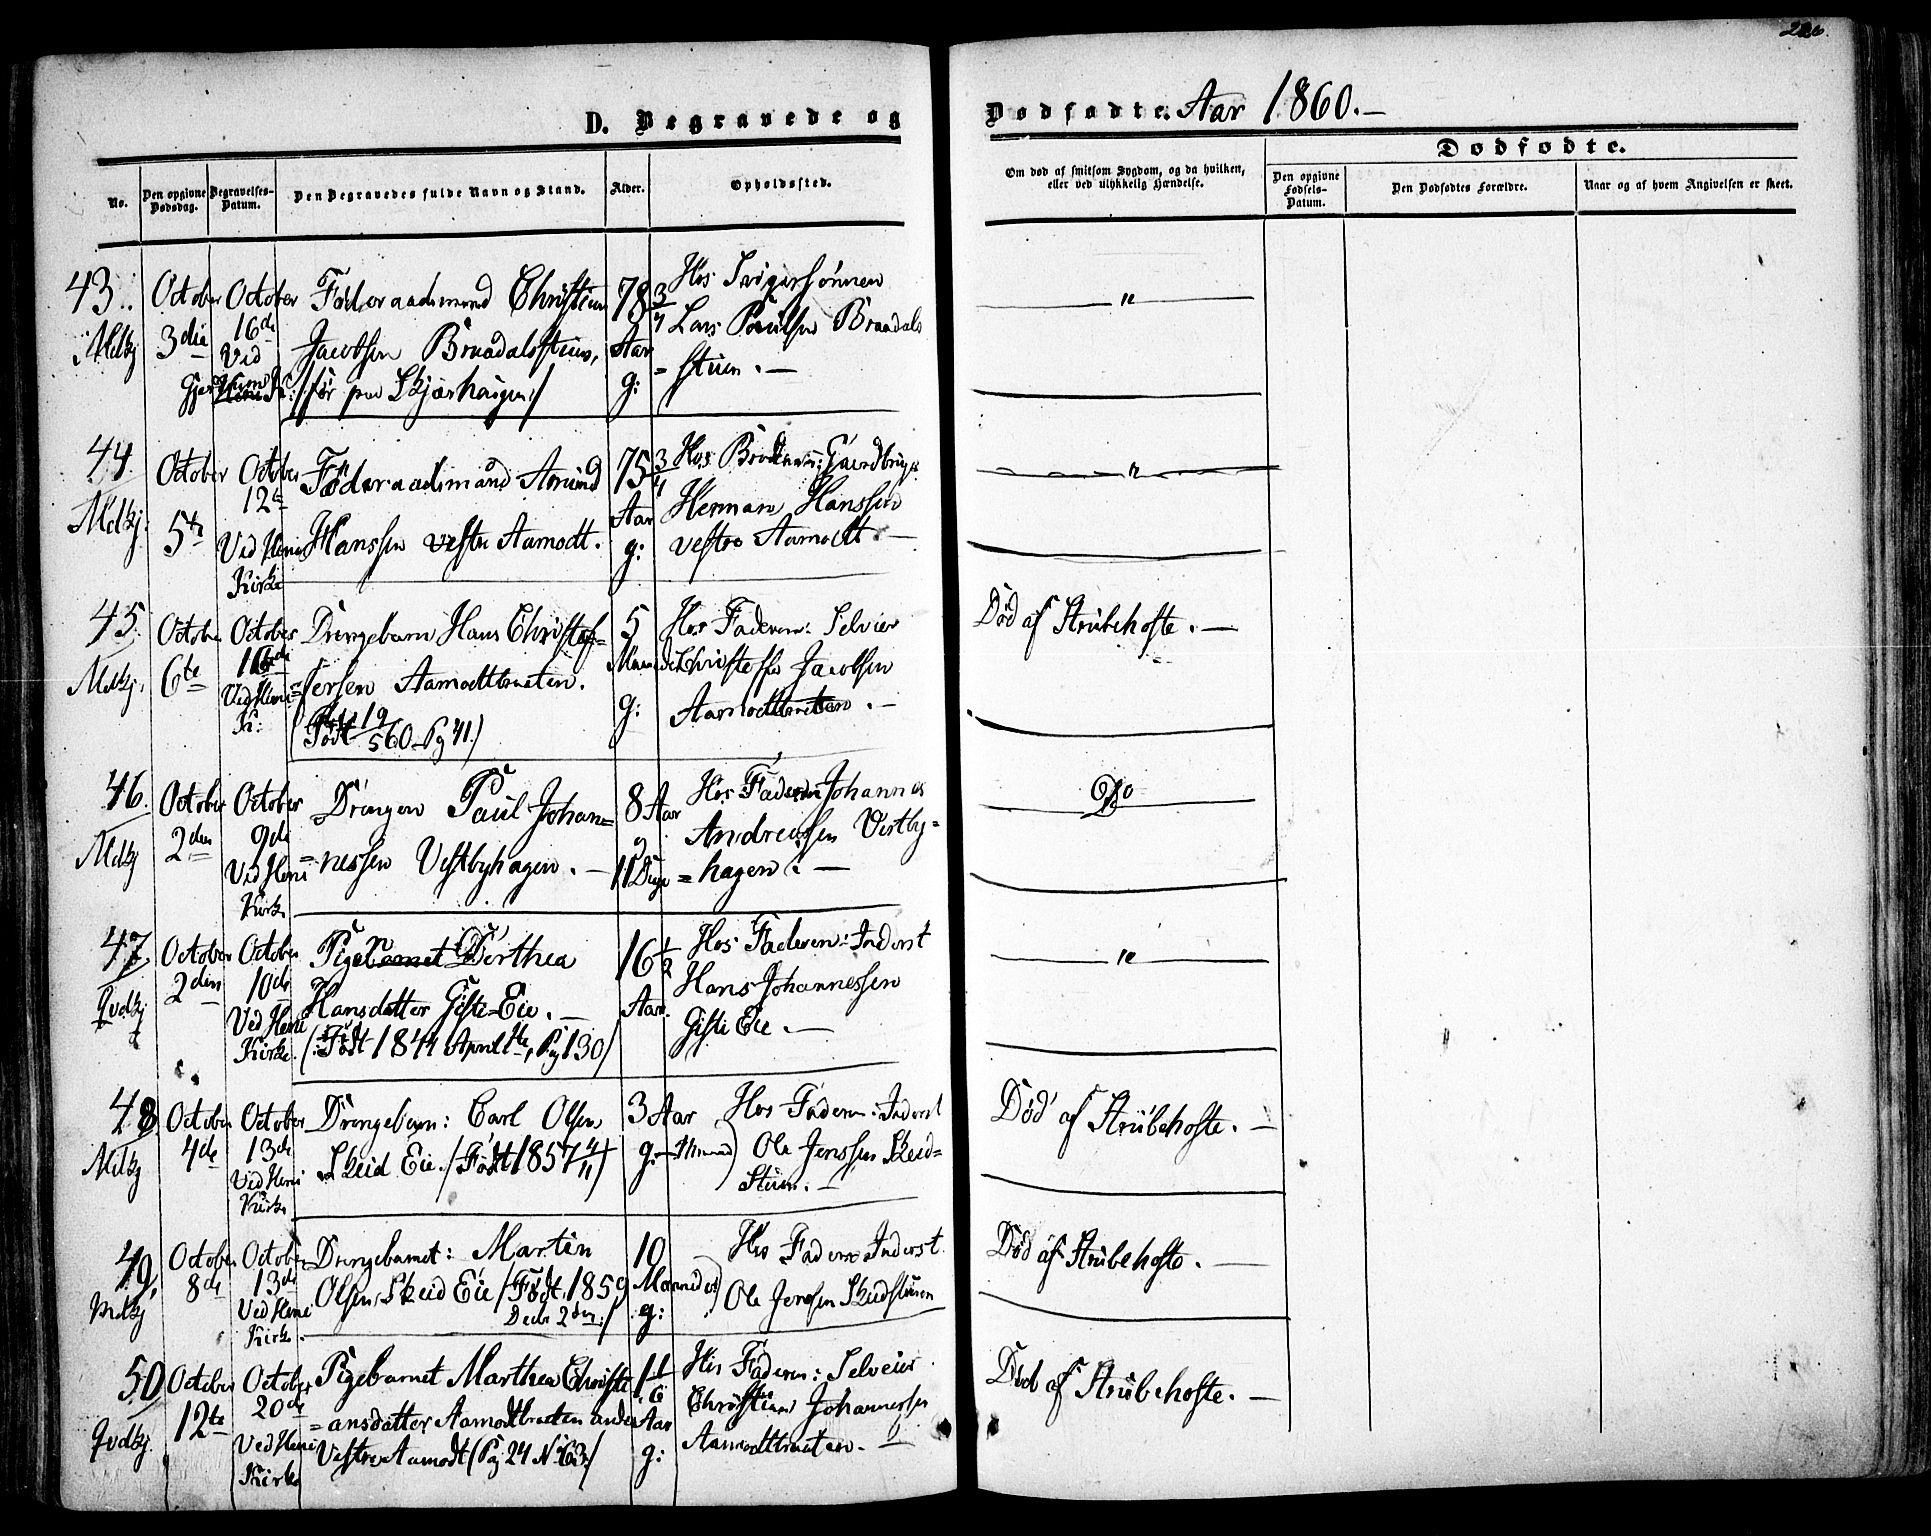 226.
D. Begravede og
Dødfødte. Aar 1860.-
No.
Den opgivne Dødsdag.
Begravelses-Datum.
Den Begravedes fulde Navn og Stand.
Alder.
Opholdssted.
Om død af smitsom Sygdom, og da hvilken,
eller ved ulykkelig Hændelse.
Dødfødte.
Den opgivne Fødsels-Datum.
Den Dødfødtes Forældre.
Naar og af hvem Angivelsen er skeet.
43. October October Föderaadsmand Christian 78 3/4 Hos Svigersönnen
Mdkj 3die 16de Jacobsen Braadalsstuen, Aar Lars Paulsen Braadals
Ved /för paa Skjærhaugen/ g: =stuen. —
"
44 October October Föderaadsmand Amund 75 3/4 Hos Broderen: Gaardbruger
Mdkj: 5te 12te Hanssen vestre Aamodt. Aar Herman Hanssen
Ved Heni Kirke g: vestre Aamodt. —
"
45. October October Drengebarn Hans Christof= 5 Hos Faderen: Selveier
Mdkj. 6te 16de =fersen Aamodtbraaten. Maaneder Christoffer Jacobsen
Ved Heni K: (Født 19/5 60 – Pg 41.) g: Aamodtbraaten. —
Død af Strubehoste. —
46. October October Drengen Paul Johan= 8 Aar Hos Faderen Johannes
Mdkj 2den 9de =nessen Vestbyhagen. — og Andreassen Vestby=
Ved Heni Kirke 11 Dage =hagen. —
Do
47. October October Pigebarnet Dorthea 16 1/2 Hos Faderen: Inderst
Qvdkj 2den 10de Hansdatter Gisti=Eie. — Aar. Hans Johannessen
Ved Heni Kirke. (Født 1844 April 1te, Pg 130) Gisti Eie. —
"
48. October October Drengebarn: Carl Olsen 3 Aar Hos Faderen: Inderst
Mdkj 4de 13de Skeid Eie. (Født 1857 4/11) g: Ole Jenssen Skeid=
Ved Heni Kirke Stuen. —
Død af Strubehoste. —
49, October October Drengebarnet: Martin 10 Hos Faderen Inderst
Mdkj 8de 13de Olsen Skeid Eie /Født 1859 Maaneder Ole Jenssen Skeidstuen
Ved Heni Kirke. Decbr 2den/ g:
Død af Strubehoste. —
50 October October Pigebarnet Marthea Christi 1 1/6 Hos Faderen: Selveier
Qvdkj. 12te 20de =ansdatter Aamodtbraaten under Aar Christian Johannessen
Ved Heni Kirke Vestre Aamodt (Pg 24 No 63.) g: Aamodtbraaten. —
Død af Strubehoste. —